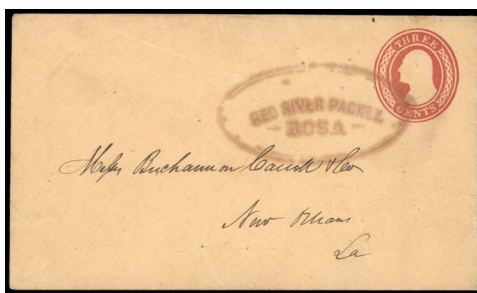 THREE
CENTS
RED RIVER PACKET
- ROSA -
Messrs Buchannon Carroll & Co
New Orleans
La